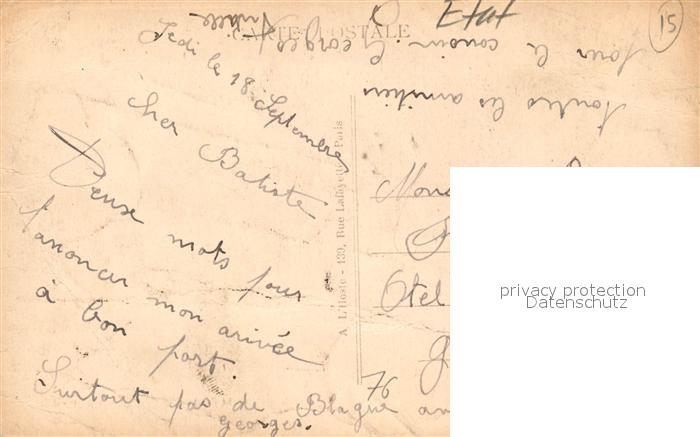 CARTE POSTALE
Etat
15
Jedi le 18 Septembre
cher Batiste
Deuse mots pour
t'anoncer mon arivée
à bon port.
Surtout pas de Blague
georges.
toutes les amitiers
pour le cousin Georges
A L'Hoste - 139, Rue Lafayette, Paris
Otel
76
privacy protection
Datenschutz